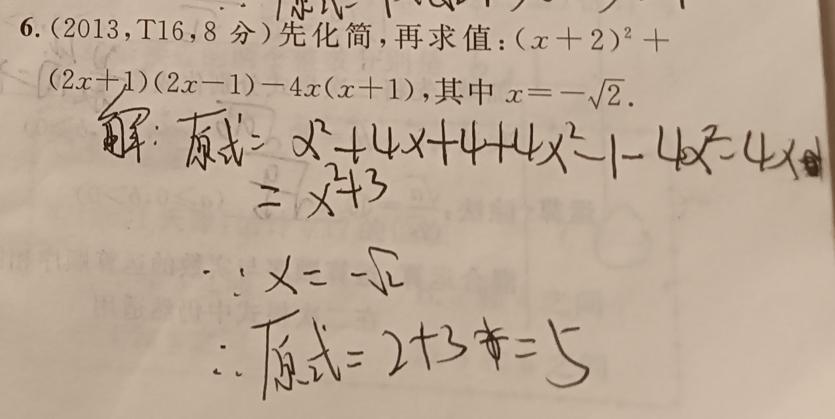 6.(2013,T16,8 分)先化简,再求值:(x+2)²+
(2x+1)(2x-1)-4x(x+1),其中 x=-√2.
解:原式=x²+4x+4+4x²-1-4x²-4x
=x²+3
∵x=-√2
∴原式=2+3=5